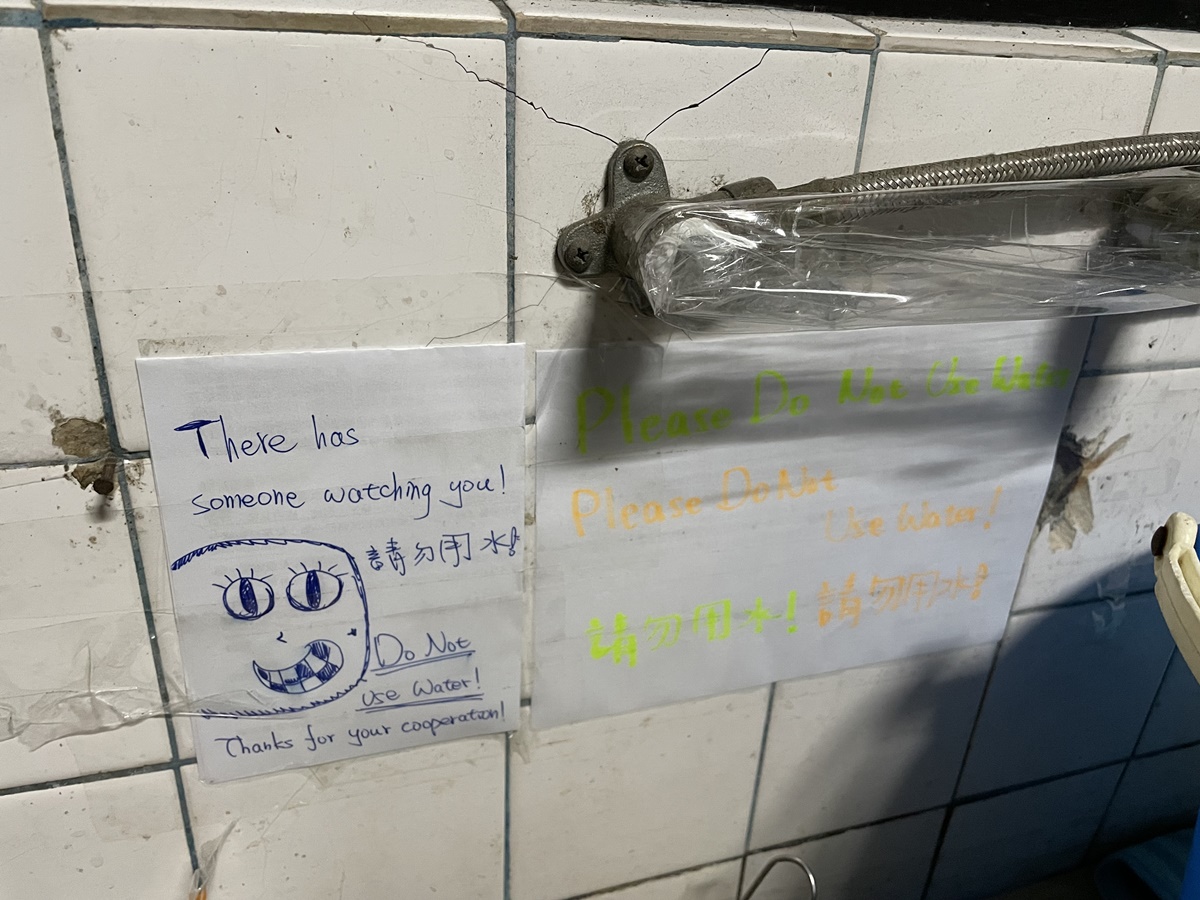 There has
someone watching you!
請勿用水!
Do Not
Use Water!
Thanks for your cooperation!
Please Do Not Use Water
Please Do Not
Use Water!
請勿用水!
請勿用水!